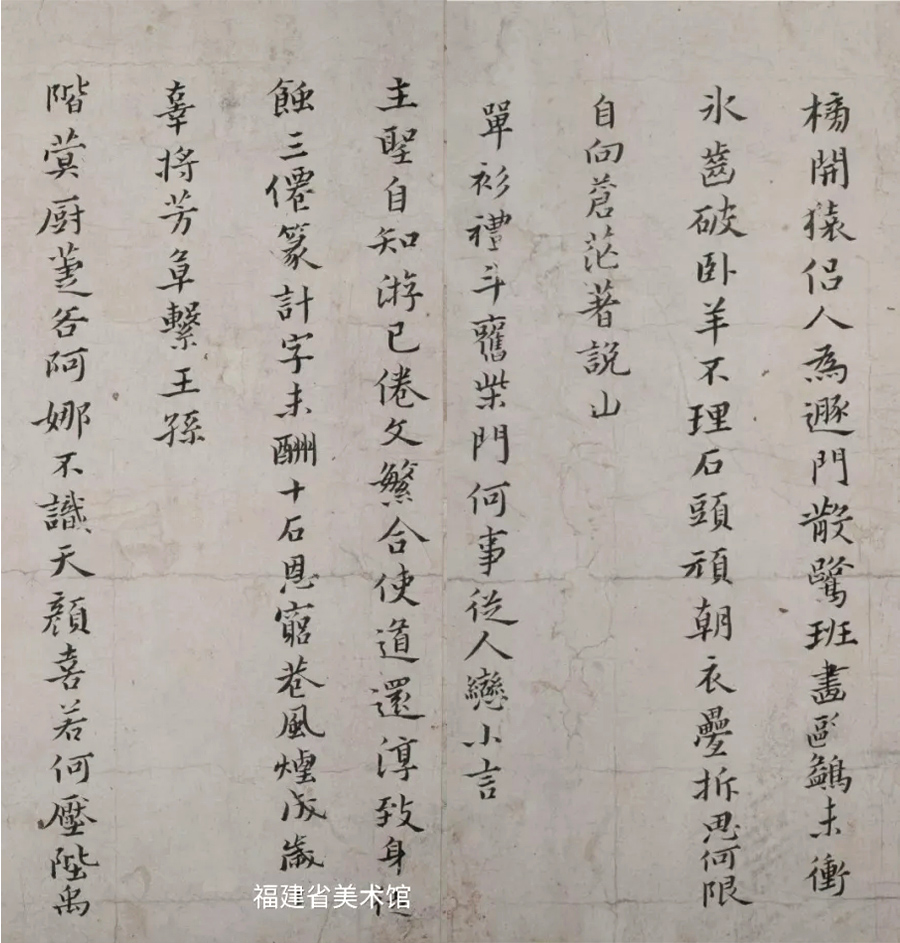 榜開猿侣人為遯門散鷺班畫毆鷁未衝
氷齒破卧羊不理石頭頑朝衣疊拆思何限
自向蒼茫著説山
單衫禮斗舊柴門何事從人戀小言
主聖自知游已倦文繁合使道還淳致身從
蝕三僊篆計字未酬十石恩窮巷風煙成歲
辜將芳草繫王孫
階蓂厨萐谷阿娜不識天顔喜若何壓陛禹
福建省美术馆